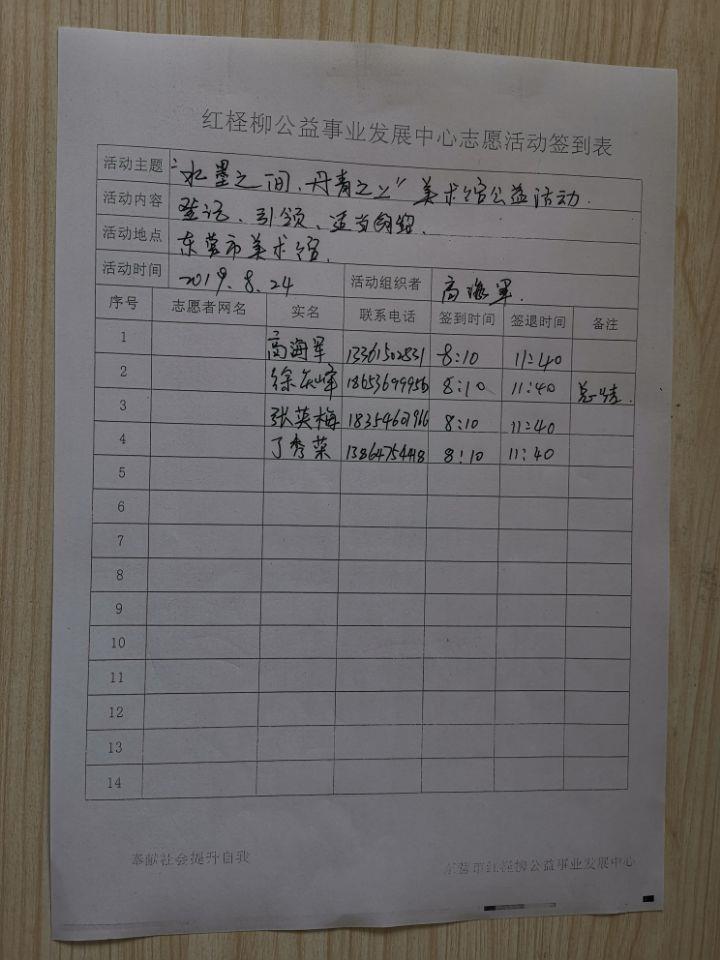 红柽柳公益事业发展中心志愿活动签到表
活动主题 "水墨之间、丹青之上"美术馆公益活动.
活动内容 登记、引领、
活动地点 东营市美术馆.
活动时间 2019.8.24 活动组织者 高海军.
序号 志愿者网名 实名 联系电话 签到时间 签退时间 备注
1 高海军 13361502831 8:10 11:40
2 徐庆峰 18653699956 8:10 11:40
3 张英梅 18354601916 8:10 11:40
4 丁秀菜 13864754418 8:10 11:40
5
6
7
8
9
10
11
12
13
14
奉献社会提升自我
东营市红柽柳公益事业发展中心